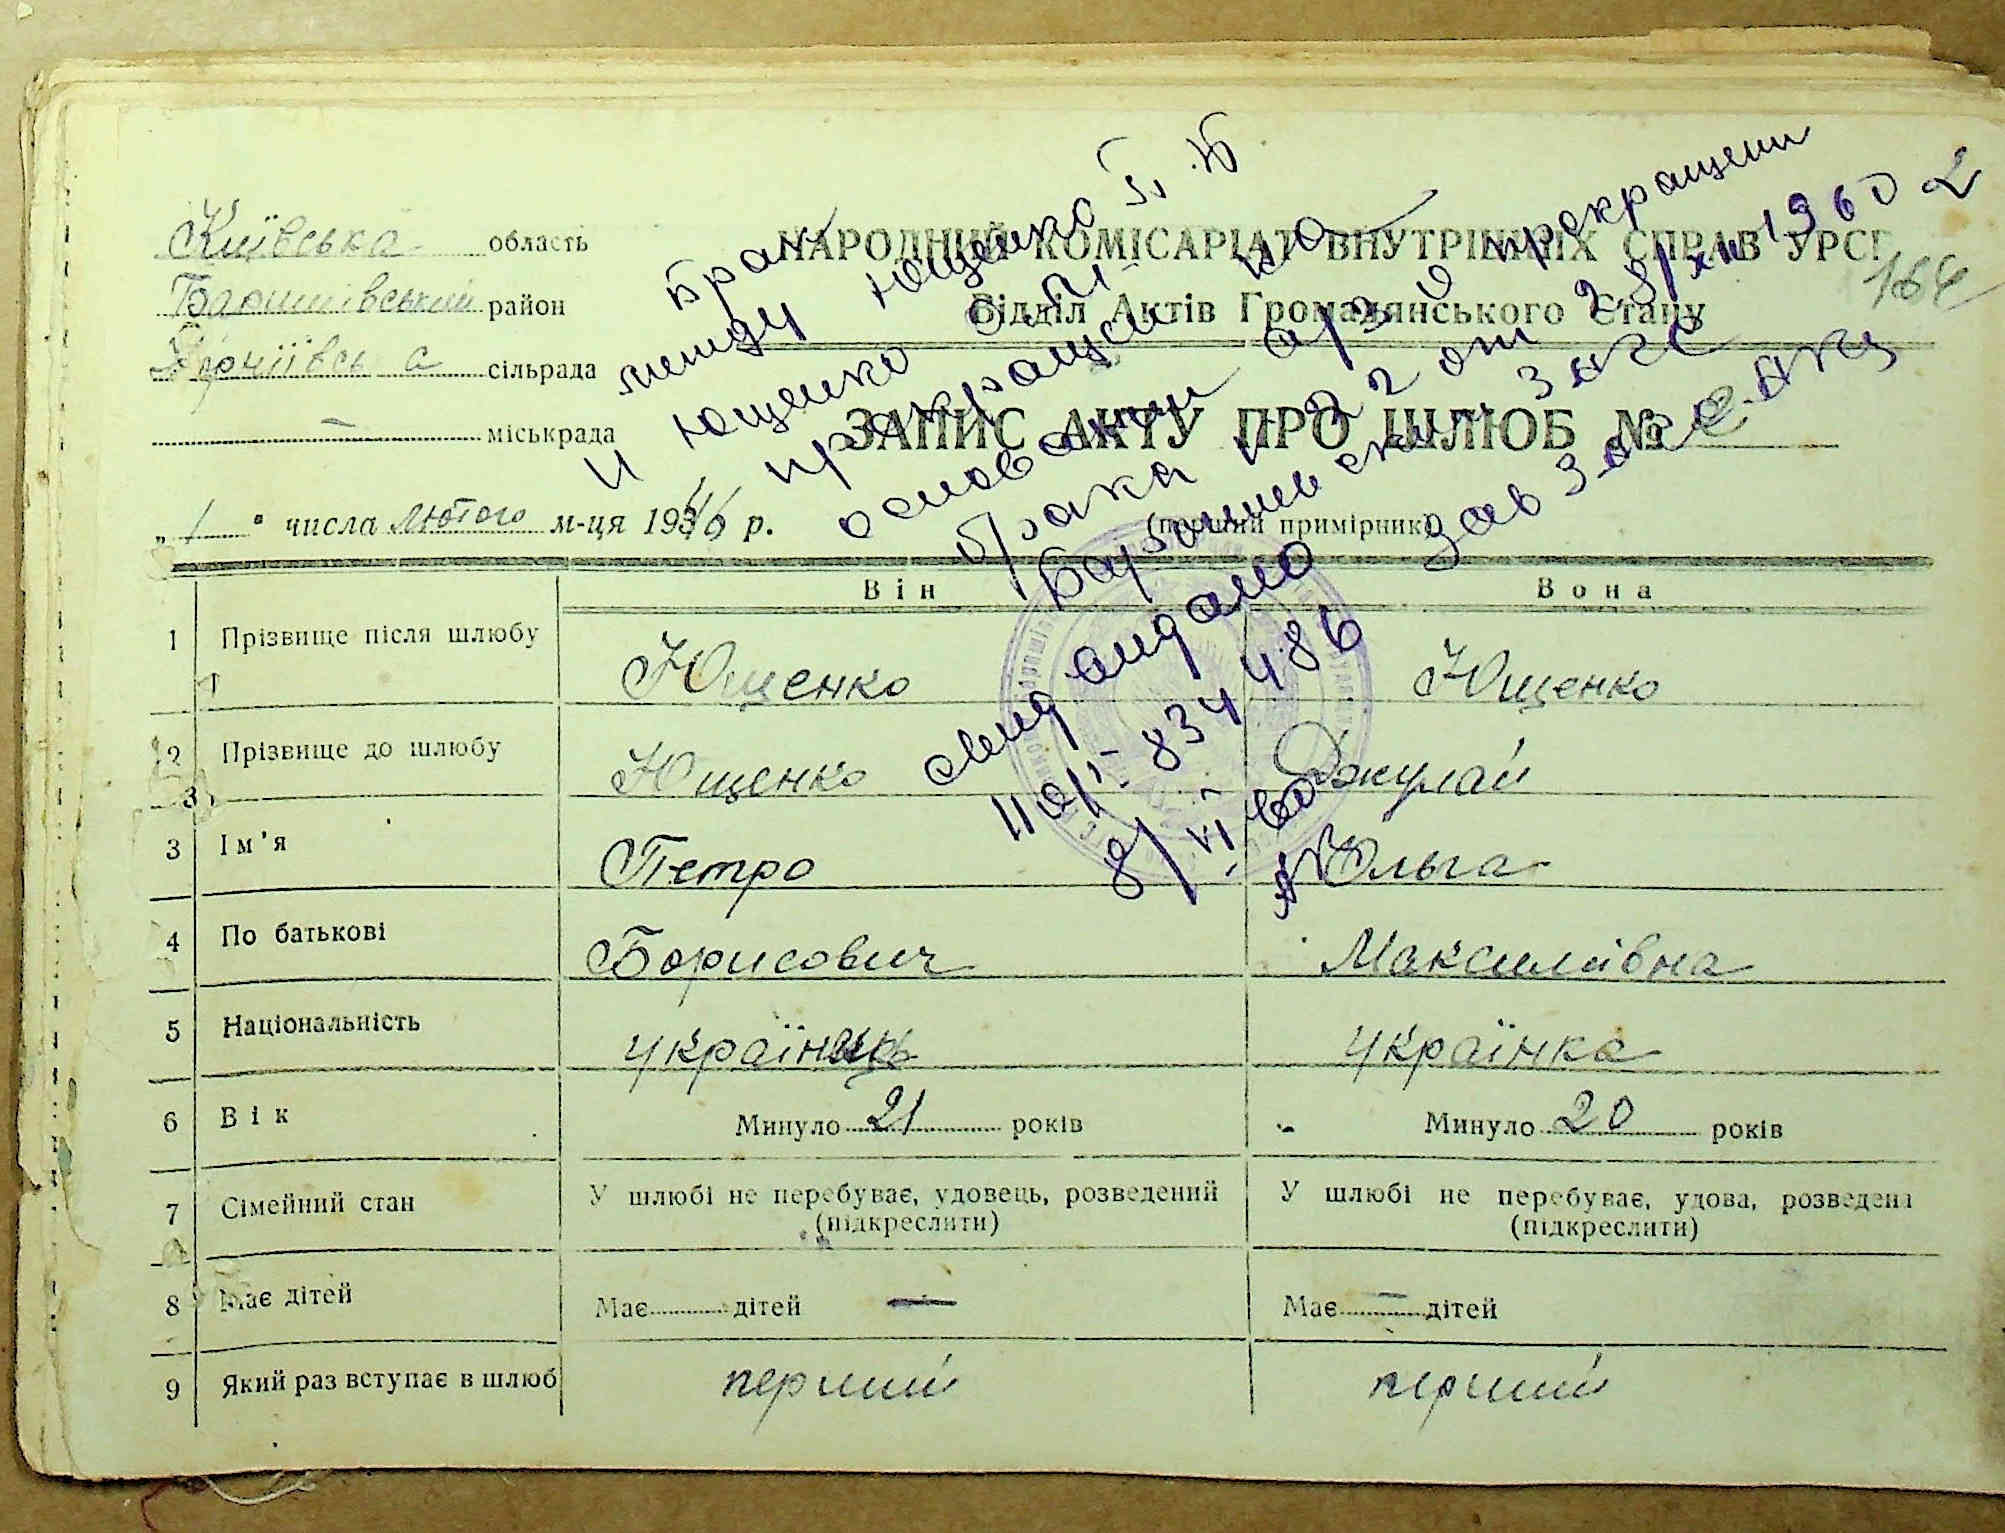 Київська область
Баришівський район
сільрада
— міськрада
НАРОДНИЙ КОМІСАРІАТ ВНУТРІШНІХ СПРАВ УРСР
164
Відділ Актів Громадянського Стану
ЗАПИС АКТУ ПРО ШЛЮБ № 2
„ 1 “ числа лютого м-ця 1946 р.
(перший примірник)
Брак
между Ющенко П. Б
и Ющенко О. М.
прекращен на
основании а/з о прекращении
брака № 22 от 28/XII 1960 г
Барышевским ЗАГС
Зав Загс
выдано
834486
8/VI 60
Він
Вона
1 Прізвище після шлюбу Ющенко Ющенко
2 Прізвище до шлюбу Ющенко Джулай
3 Ім’я Петро Ольга
4 По батькові Борисович Максимівна
5 Національність українець українка
6 Вік Минуло 21 років Минуло 20 років
7 Сімейний стан У шлюбі не перебуває, удовець, розведений У шлюбі не перебуває, удова, розведена
(підкреслити) (підкреслити)
8 Має дітей Має дітей — Має — дітей
9 Який раз вступає в шлюб перший перший